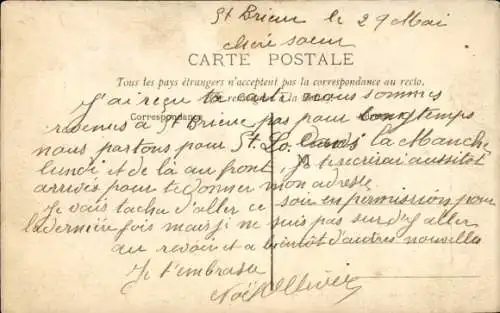 St Brieuc le 29 Mai
chère soeur
CARTE POSTALE
Tous les pays étrangers n'acceptent pas la correspondance au recto.
J'ai reçu ta carte nous sommes
Correspondance
revenus à St Brieuc pas pour longtemps
nous partons pour St. Lo. dans la Manche
lundi et de là au front. Je t'écrirai aussitôt
arrivés pour te donner mon adresse
Je vais tacher d'aller ce soir en permission pour
la dernière fois mais je ne suis pas sur d'y aller
au revoir et a bientot d'autres nouvelles
Je t'embrasse
Noël Ollivier